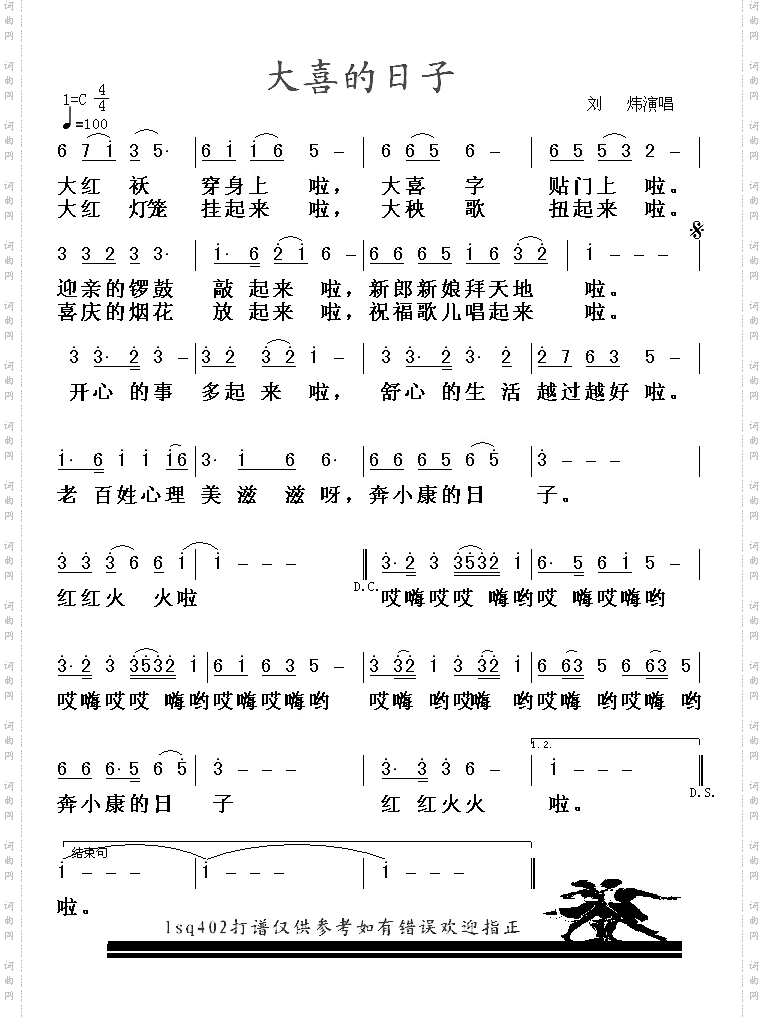 大喜的日子
1=C 4/4
♩=100
刘 炜演唱
6 7 i 3 5· | 6 i i 6 5 – | 6 6 5 6 – | 6 5 5 3 2 – |
大红 袄 穿身上 啦， 大喜 字 贴门上 啦。
大红 灯笼 挂起来 啦，大秧 歌 扭起来 啦。
3 3 2 3 3· | i· 6 2 i 6 – | 6 6 6 5 i 6 3 2 | i – – |
迎亲的锣鼓 敲 起来 啦，新郎新娘拜天地 啦。
喜庆的烟花 放 起来 啦，祝福歌儿唱起来 啦。
3 3· 2 3 – | 3 2 3 2 1 – | 3 3· 2 3· 3 | 2 7 6 3 5 – |
开心 的事 多起 来 啦， 舒心 的生 活 越过越好 啦。
i· 6 i i i6 | 3· i 6 6· | 6 6 6 5 6 5 | 3 – – – |
老 百姓心理 美 滋 滋 呀，奔小康的日 子。
3 3 3 6 6 i | i – – – ‖ 3· 2 3 3532 i | 6· 5 6 i 5 – |
D.C.
红红火 火啦 哎嗨哎哎 嗨哟哎 嗨哎嗨哟
3· 2 3 3532 i | 6 i 6 3 5 – | 3 32 i 3 32 i | 6 63 5 6 63 5 |
哎嗨哎哎 嗨哟哎嗨哎嗨哟 哎嗨 哟哎嗨 哟 哎嗨 哟哎嗨 哟
1.2.
6 6 6· 5 6 5 | 3 – – – | 3· 3 3 6 – | i – – – ‖
D.S.
奔小康的日 子 红 红火火 啦。
结束句
i – – – | i – – – | i – – – ‖
啦。
lsq402打谱仅供参考如有错误欢迎指正
词曲网